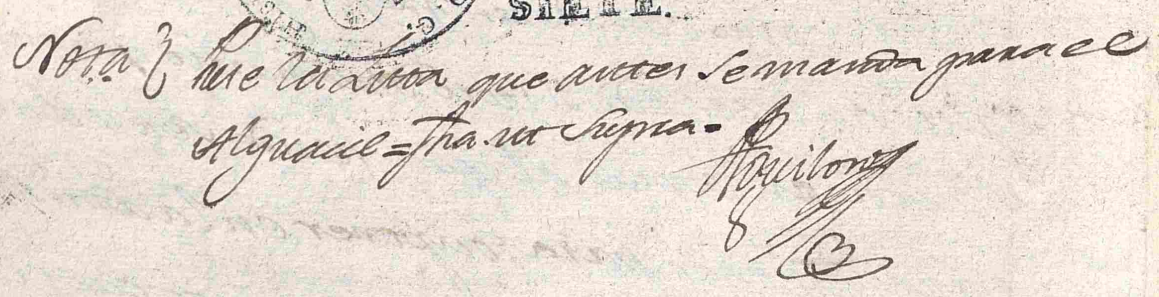 SIETE.
Nota Puse la Lista que antes se manda para el
Alguacil = fha. ut supra.